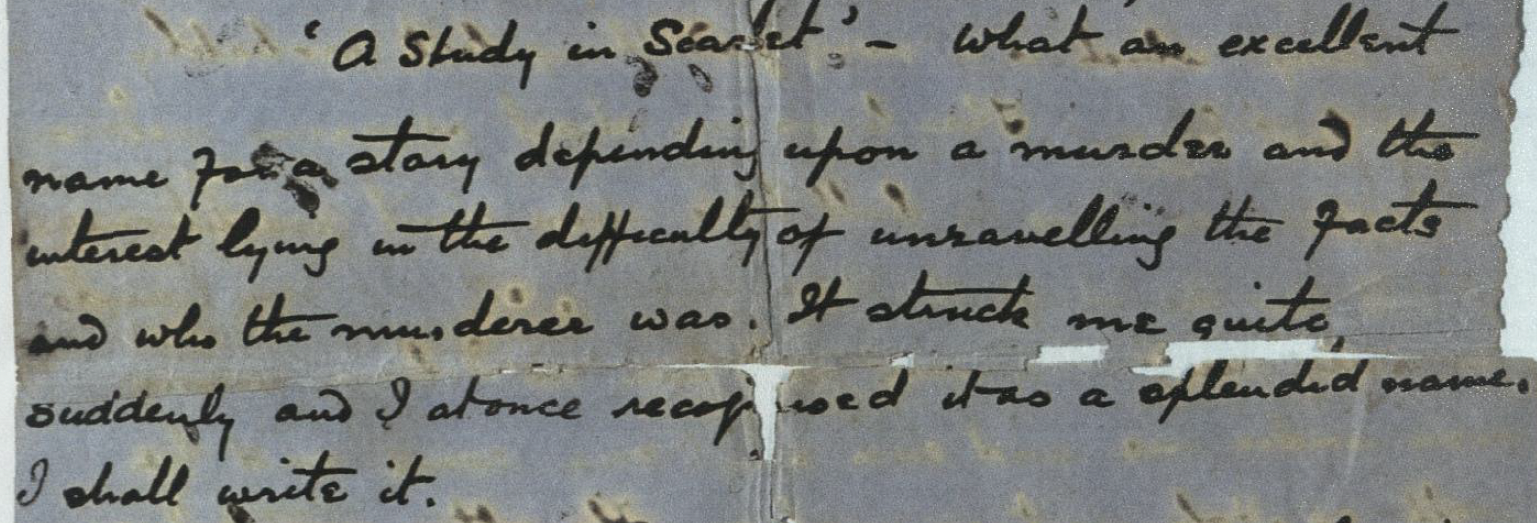 'A Study in Scarlet' - What an excellent
name for a story depending upon a murder and the
interest lying in the difficulty of unravelling the facts
and who the murderer was. It struck me quite
suddenly and I at once recognised it as a splendid name.
I shall write it.